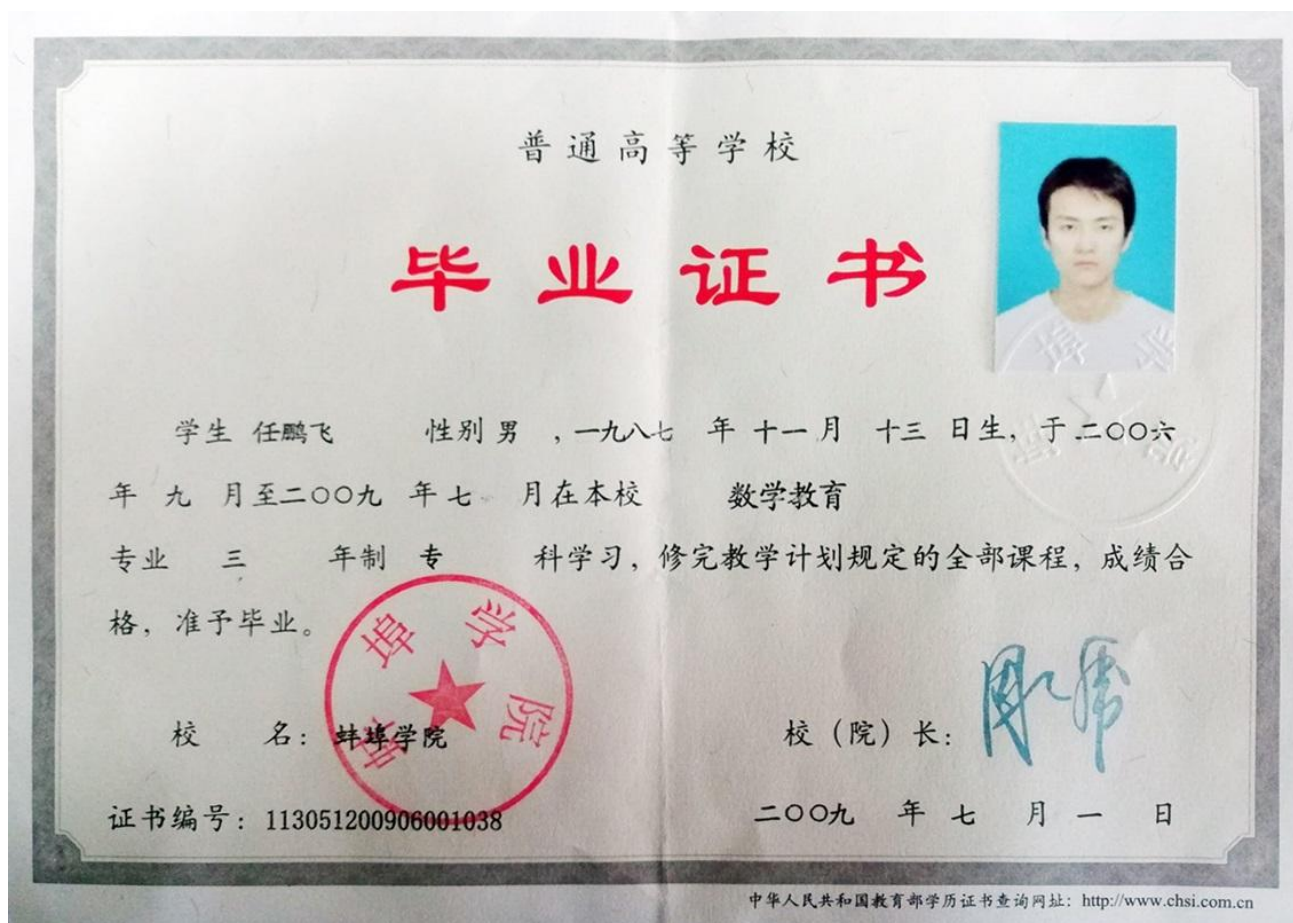 普通高等学校
毕业证书
学生 任鹏飞 性别 男 ，一九八七 年 十一 月 十三 日生，于 二〇〇六
年 九 月至二〇〇九 年 七 月在本校 数学教育
专业 三 年制 专 科学习，修完教学计划规定的全部课程，成绩合
格，准予毕业。
蚌埠学院
校 名：蚌埠学院
校（院）长：
证书编号：113051200906001038
二〇〇九 年 七 月 一 日
中华人民共和国教育部学历证书查询网址：http://www.chsi.com.cn